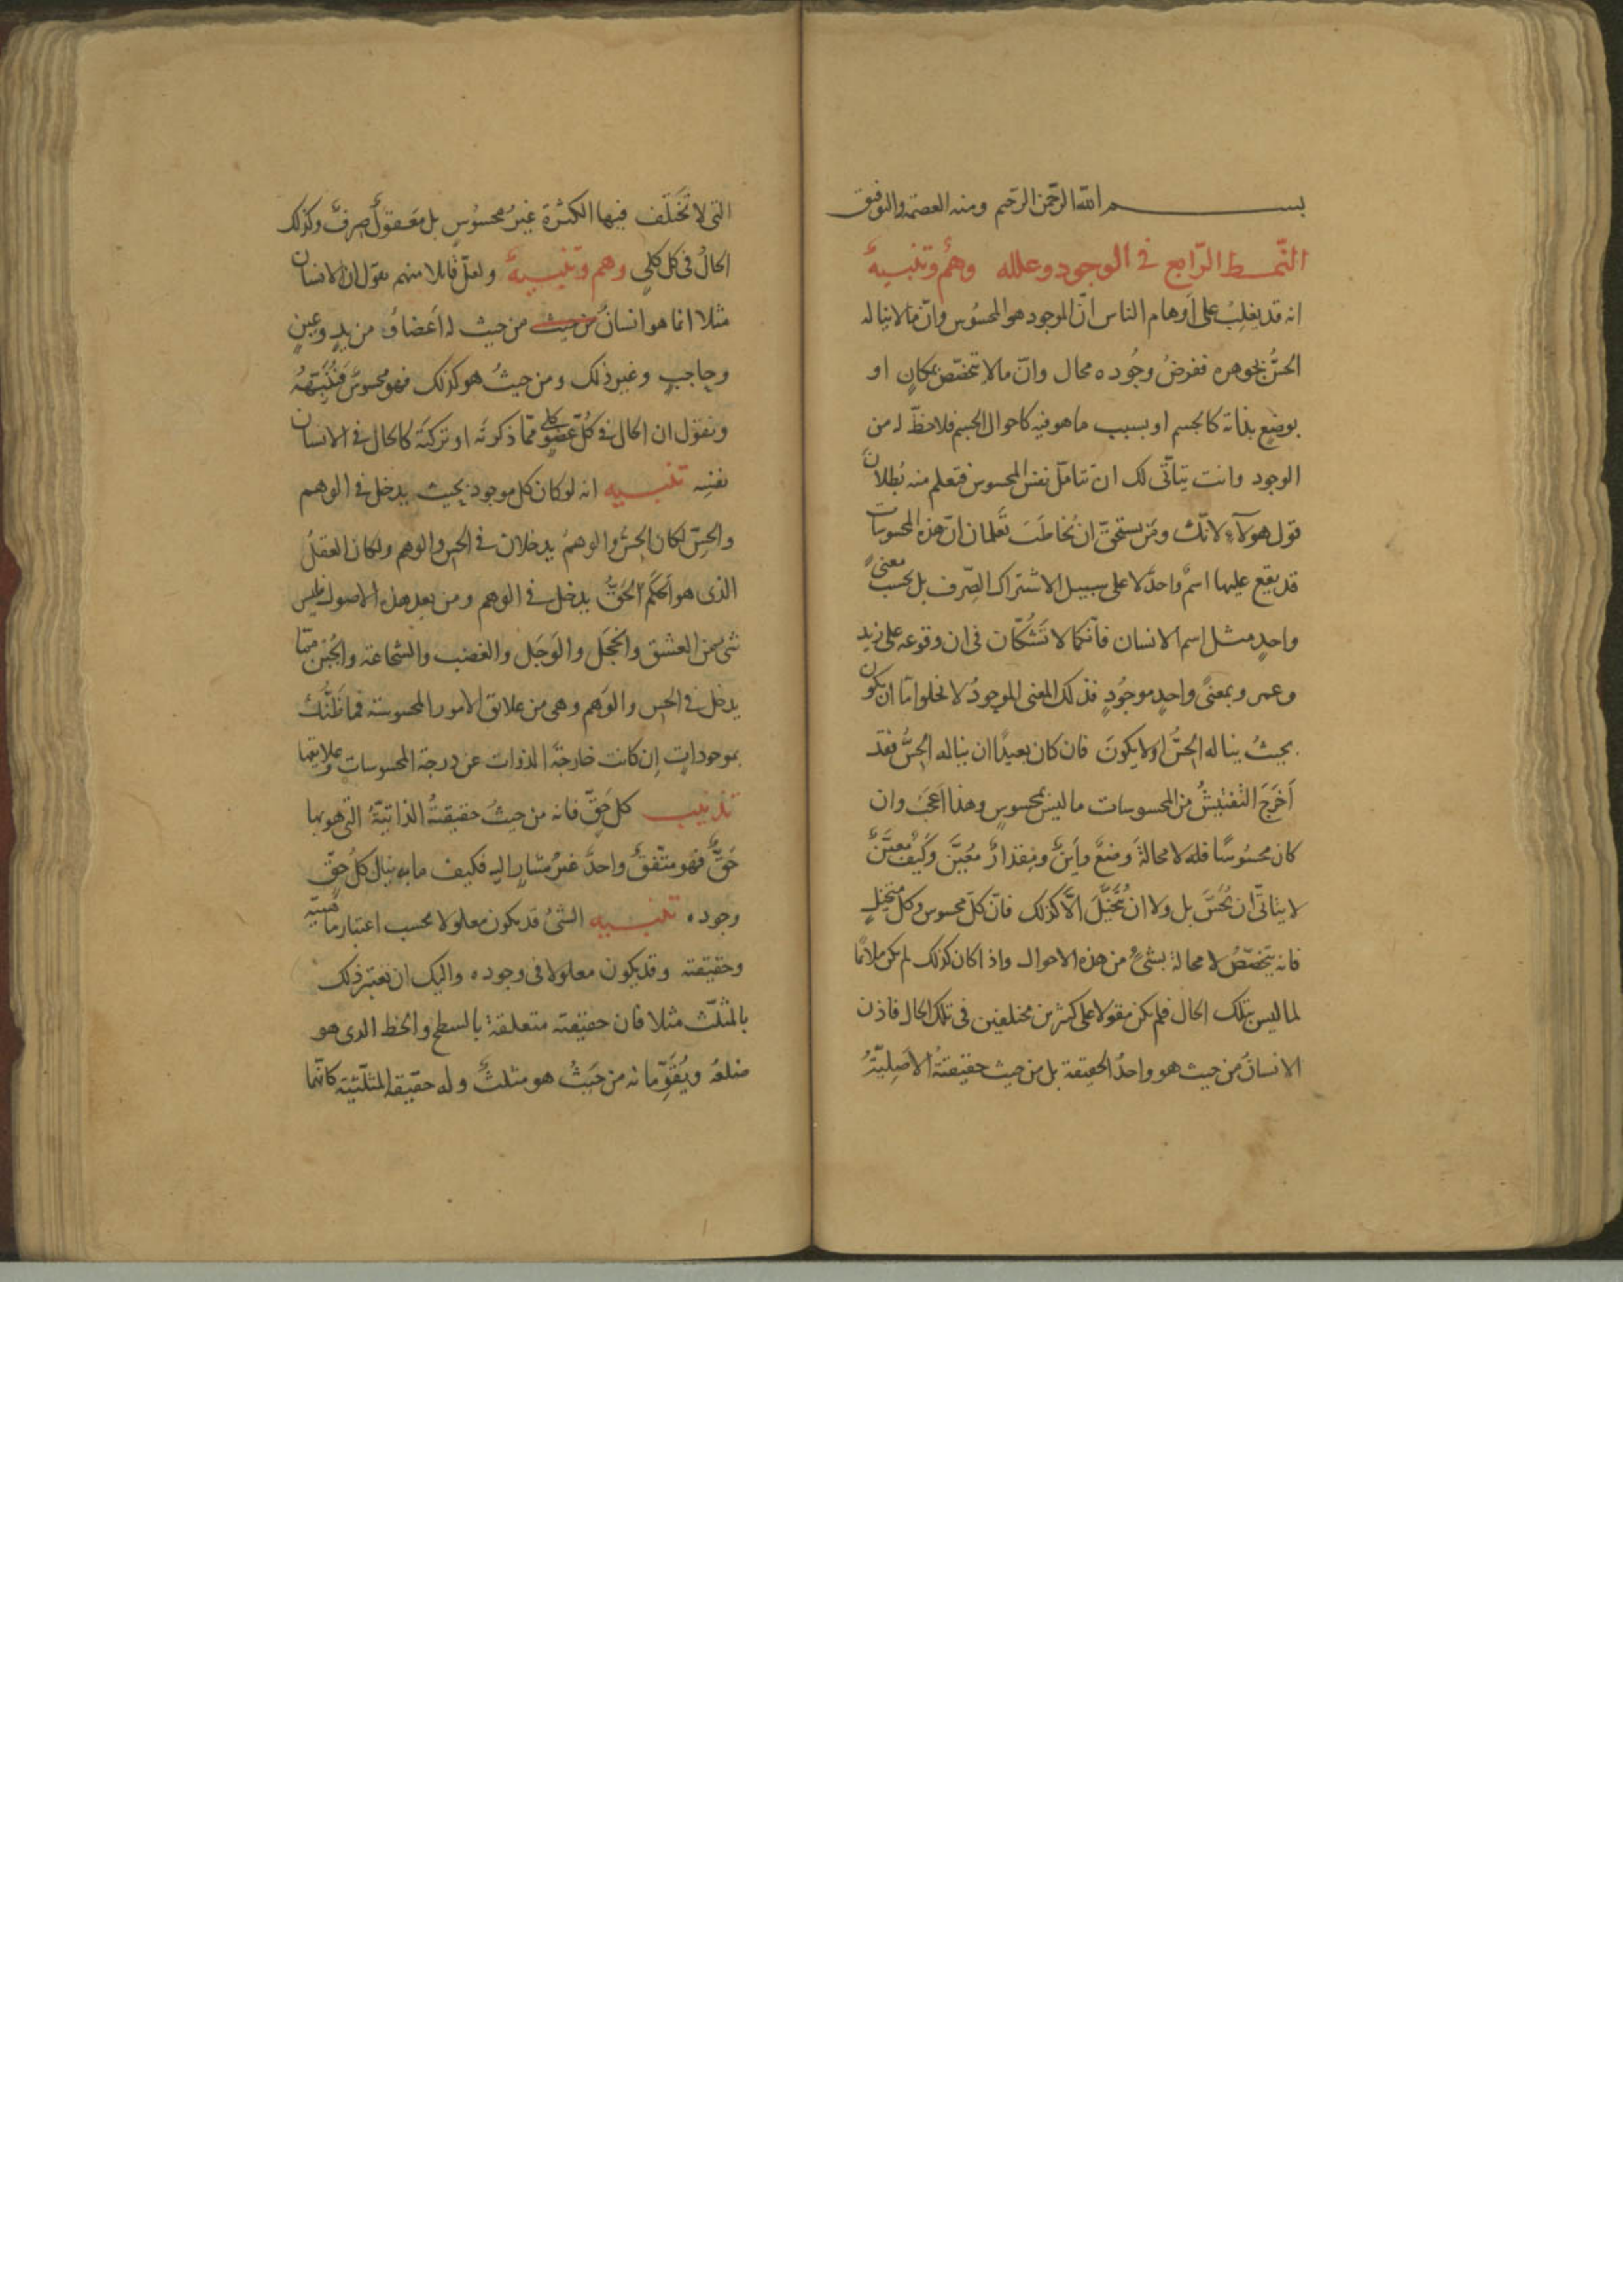 بسم الله الرحمن الرحيم ومنه العصمة والتوفيق
النّمط الرّابع في الوجود وعلله وهمٌ وتنبيهٌ
انه قد يغلبُ على أوهام الناس انّ الموجود هو المحسُوس وانّ ما لا يناله
الحسُّ بجوهره ففرضُ وجُوده محال وانّ ما لا يتخصّص بمكانٍ او
بوضعٍ بذاته كالجسم او بسبب ما هو فيه كاحوال الجسم فلا حظّ له من
الوجود وانت يتأتّى لك ان تتامّل نفس المحسوس فتعلم منه بُطلانَ
قول هولآء لانّك ومَن يستحقّ ان يُخاطَبَ تَعلمان انّ هذه المحسوسات
قد يقع عليها اسمٌ واحدٌ لا على سبيل الاشتراك الصّرف بل بحسب معنىً
واحدٍ مثل اسم الانسان فانّكما لا تَشُكّان فى ان وقوعه على زيد
وعمرو بمعنىً واحدٍ موجُودٍ فذلك المعنى الموجودُ لا يخلوا امّا ان يكون
بحيثُ يناله الحسُّ اولا يكونَ فان كان بعيدًا ان يناله الحِسُّ فقد
أَخرَجَ التّفتيشُ من المحسوسات ما ليس بمحسوسٍ وهذا اعجَبُ وان
كان محسُوسًا فله لا محالةَ وضعٌ واَينٌ ومِقدارٌ مُعيَّنٌ وكَيفٌ معيَّنٌ
لا يتاتّى ان يُحَسَّ بل ولا ان يُتَخيَّلَ الّا كذلك فانّ كلّ محسوس وكل متخيلٍ
فانه يتخصّصُ لا محالة بشىءٍ من هذه الاحوال واذا كان كذلك لم يكن ملائمًا
لما ليس بتلك الحال فلم يكن مقولا على كثيرين مختلفين فى تلك الحال فاذن
الانسانُ من حيث هو واحدُ الحقيقة بل من حيث حقيقتهُ الأصِليّةُ
التى لا تَختَلف فيها الكثرة غيرُ محسُوسٍ بل معَقولٌ صِرفٌ وكذلك
الحالُ فى كل كلىٍ وهم وتنبيهٌ ولعلّ قائلا منهم يقول ان الانسان
مثلا انما هو انسانٌ من حيث من حيث له اعَضاءٌ من يدٍ وعينٍ
وحاجبٍ وغير ذلك ومن حيثُ هو كذلك فهو محسوسٌ فنُنَبّهُهُ
ونقول ان الحال فى كُلّ عضوٍ كلى ممّا ذكرتَه او تركتَه كالحال فى الانسان
نفسِه تنبيه انه لو كان كل موجود بحيث يدخل فى الوهم
والحسّ لكان الحسُّ والوهمُ يدخلان فى الحس والوهم ولكان العقلُ
الذى هو الحَكَم الحَقُّ يدخل فى الوهم ومن بعد هذه الاصول فليس
شىءٌ من العشق والخجَل والوَجَل والغضب والشجاعة والجُبن ممّا
يدخل فى الحِس والوَهم وهى من علائق الامور المحسوسة فما ظَنُّكَ
بموجوداتٍ إن كانت خارجةَ الذوات عن درجة المحسوسات وعلايقها
تذنيب كلّ حَقٍّ فانه من حيثُ حقيقتهُ الذاتيّةُ التى هو بها
حَقٌّ فهو متّفقٌ واحدٌ غيرُ مشارٍ اليه فكيف ما به ينال كلُ حقٍّ
وجوده تنبيه الشىُ قد يكون معلولا بحسب اعتبار ماهيّته
وحقيقته وقد يكون معلولا فى وجوده واليك ان تعتبر ذلك
بالمثلّث مثلا فان حقيقته متعلقة بالسطح والخط الذى هو
ضلعهُ ويُقَوِّمانه من حَيثُ هو مثلثٌ وله حقيقة المثلّثية كانّهما